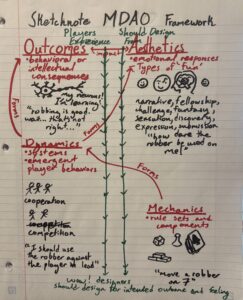 Sketchnote MDAO Framework
Players
Experience
Should Design
From
impact
Outcomes
• behavioral or
intellectual
consequences
my neurons!
I'm learning
"robbing is good.
wait... that's not
right..."
Aesthetics
• emotional responses
"Types of fun"
narrative, fellowship,
challenge, fantasy,
sensation, discovery,
expression, submission
"how dare the
robber be used
on me!"
Forms
Forms
Forms
Dynamics
• systems
• emergent
played behaviors
cooperation
competition
"I should use
the robber against
the player in lead"
Mechanics
• rule sets and
components
"move a robber
on 7"
designers
should design for intended outcome and feeling